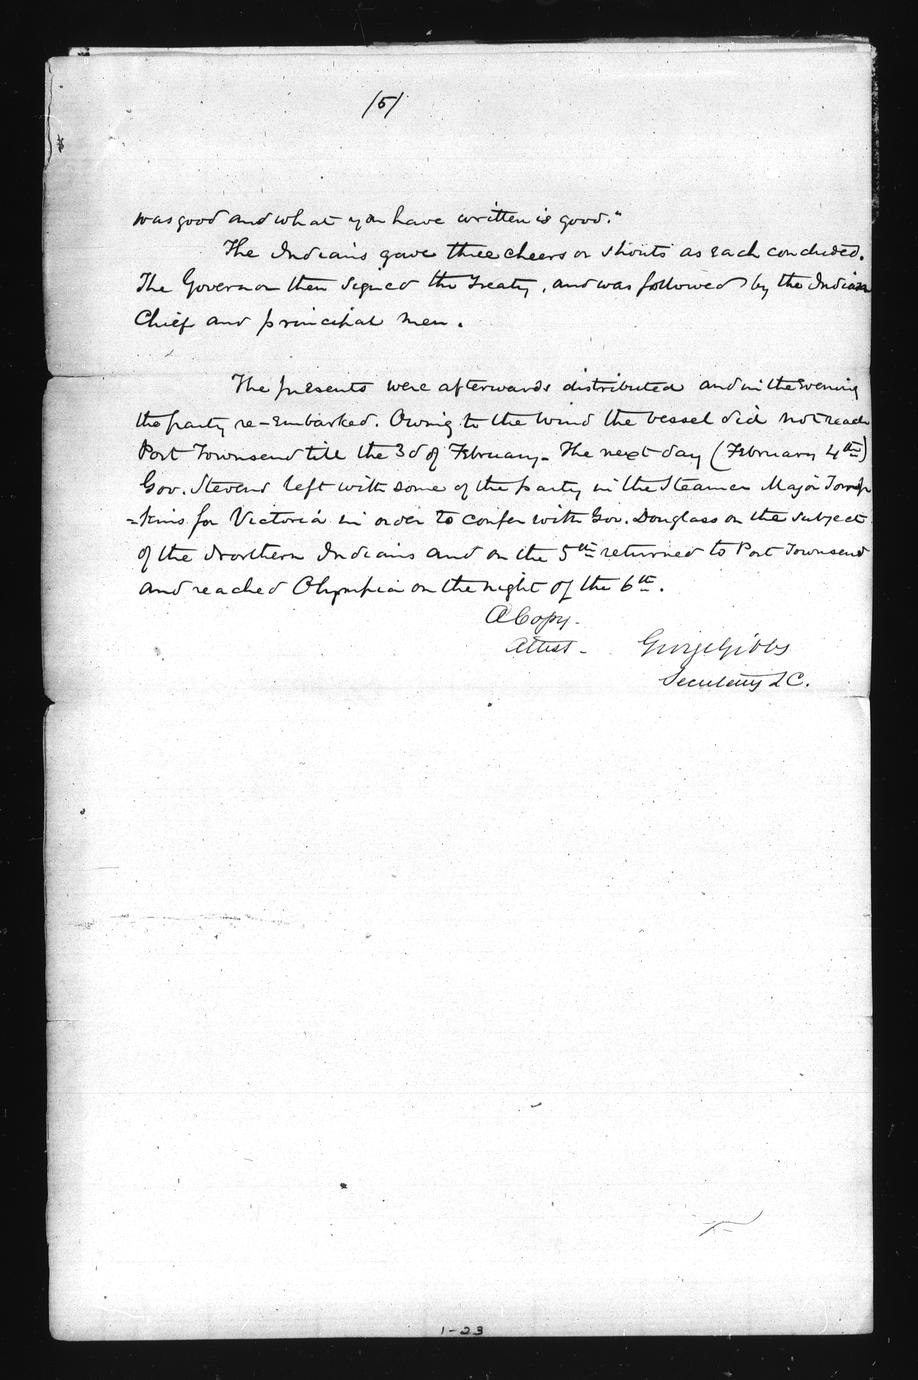 /5/
was good and what you have written is good."
The Indians gave three cheers or shouts as each concluded.
The Governor then signed the Treaty, and was followed by the Indian
Chief and principal men.
The presents were afterwards distributed and in the evening
the party re-embarked. Owing to the wind the vessel did not reach
Port Townsend till the 3d of February. The next day (February 4th)
Gov. Stevens left with some of the party in the Steamer Major Tomp
=kins for Victoria in order to confer with Gov. Douglass on the subject
of the Northern Indians and on the 5th returned to Port Townsend
and reached Olympia on the night of the 6th.
A Copy.
Attest - George Gibbs
Secretary
1-23